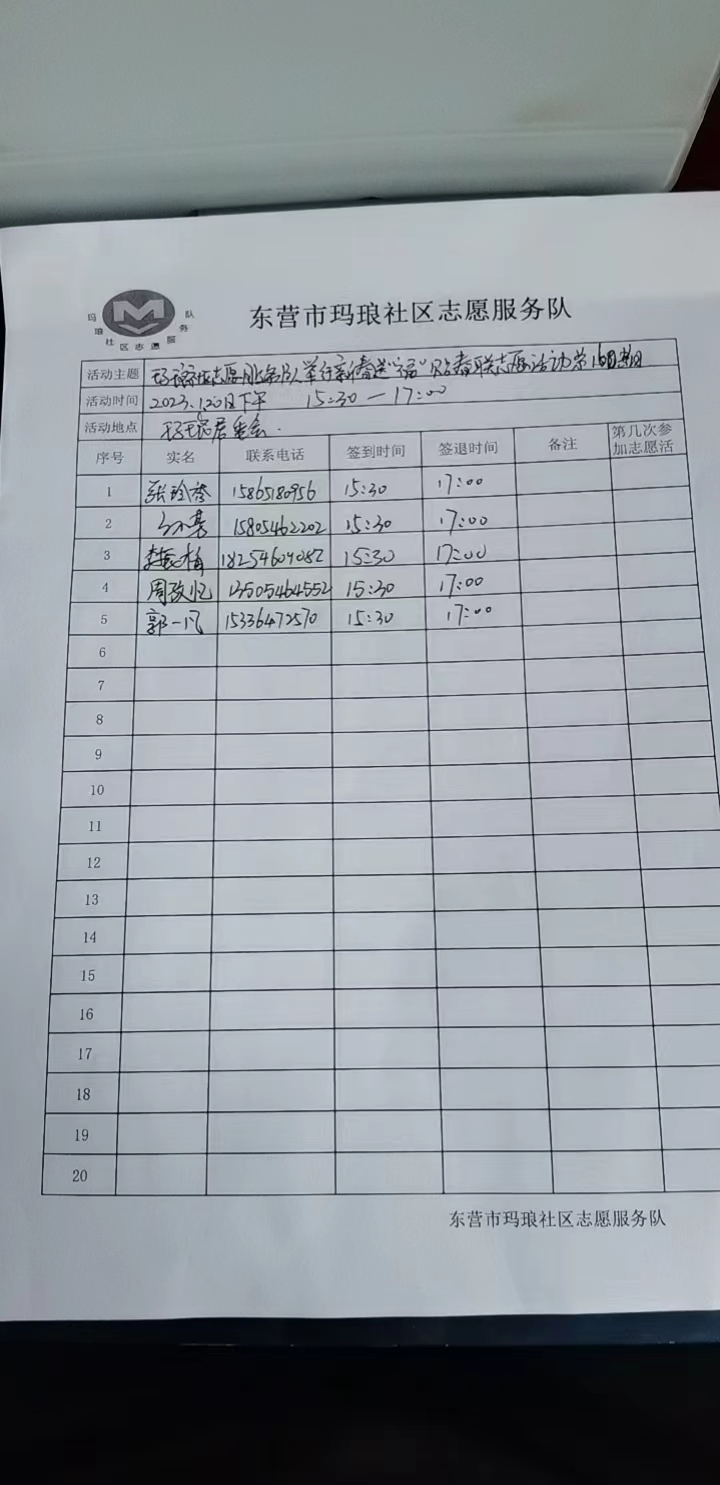 玛琅社区志愿服务队
东营市玛琅社区志愿服务队
活动主题 玛琅社区志愿服务队举行新春送“福”贴春联志愿活动第 期
活动时间 2023.1.20日下午 15:30—17:00
活动地点 玛琅居委会.
序号 实名 联系电话 签到时间 签退时间 备注 第几次参加志愿活
1 张 15865180956 15:30 17:00
2 15805462202 15:30 17:00
3 李 梅 18254609082 15:30 17:00
4 周政忆 13505464552 15:30 17:00
5 郭一凡 15336472570 15:30 17:00
6
7
8
9
10
11
12
13
14
15
16
17
18
19
20
东营市玛琅社区志愿服务队